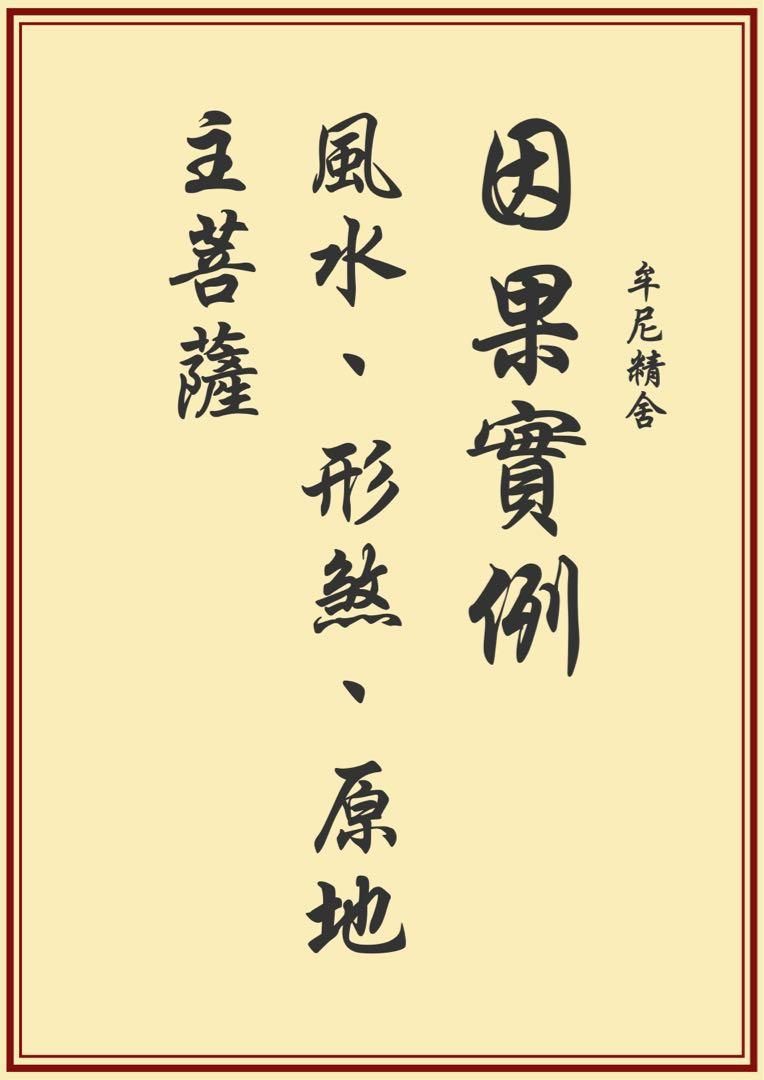 牟尼精舍
因果實例
風水、形煞、原地
主菩薩